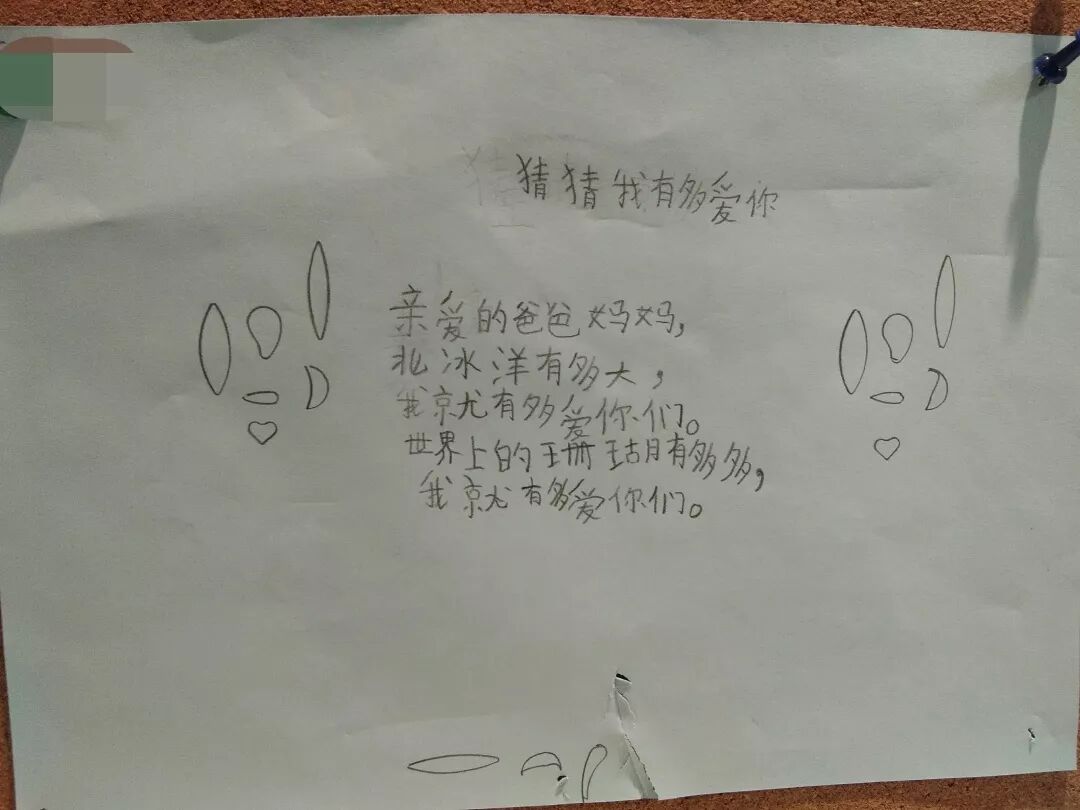 猜猜我有多爱你
亲爱的爸爸妈妈,
北冰洋有多大,
我就有多爱你们。
世界上的珊瑚有多多,
我就有多爱你们。